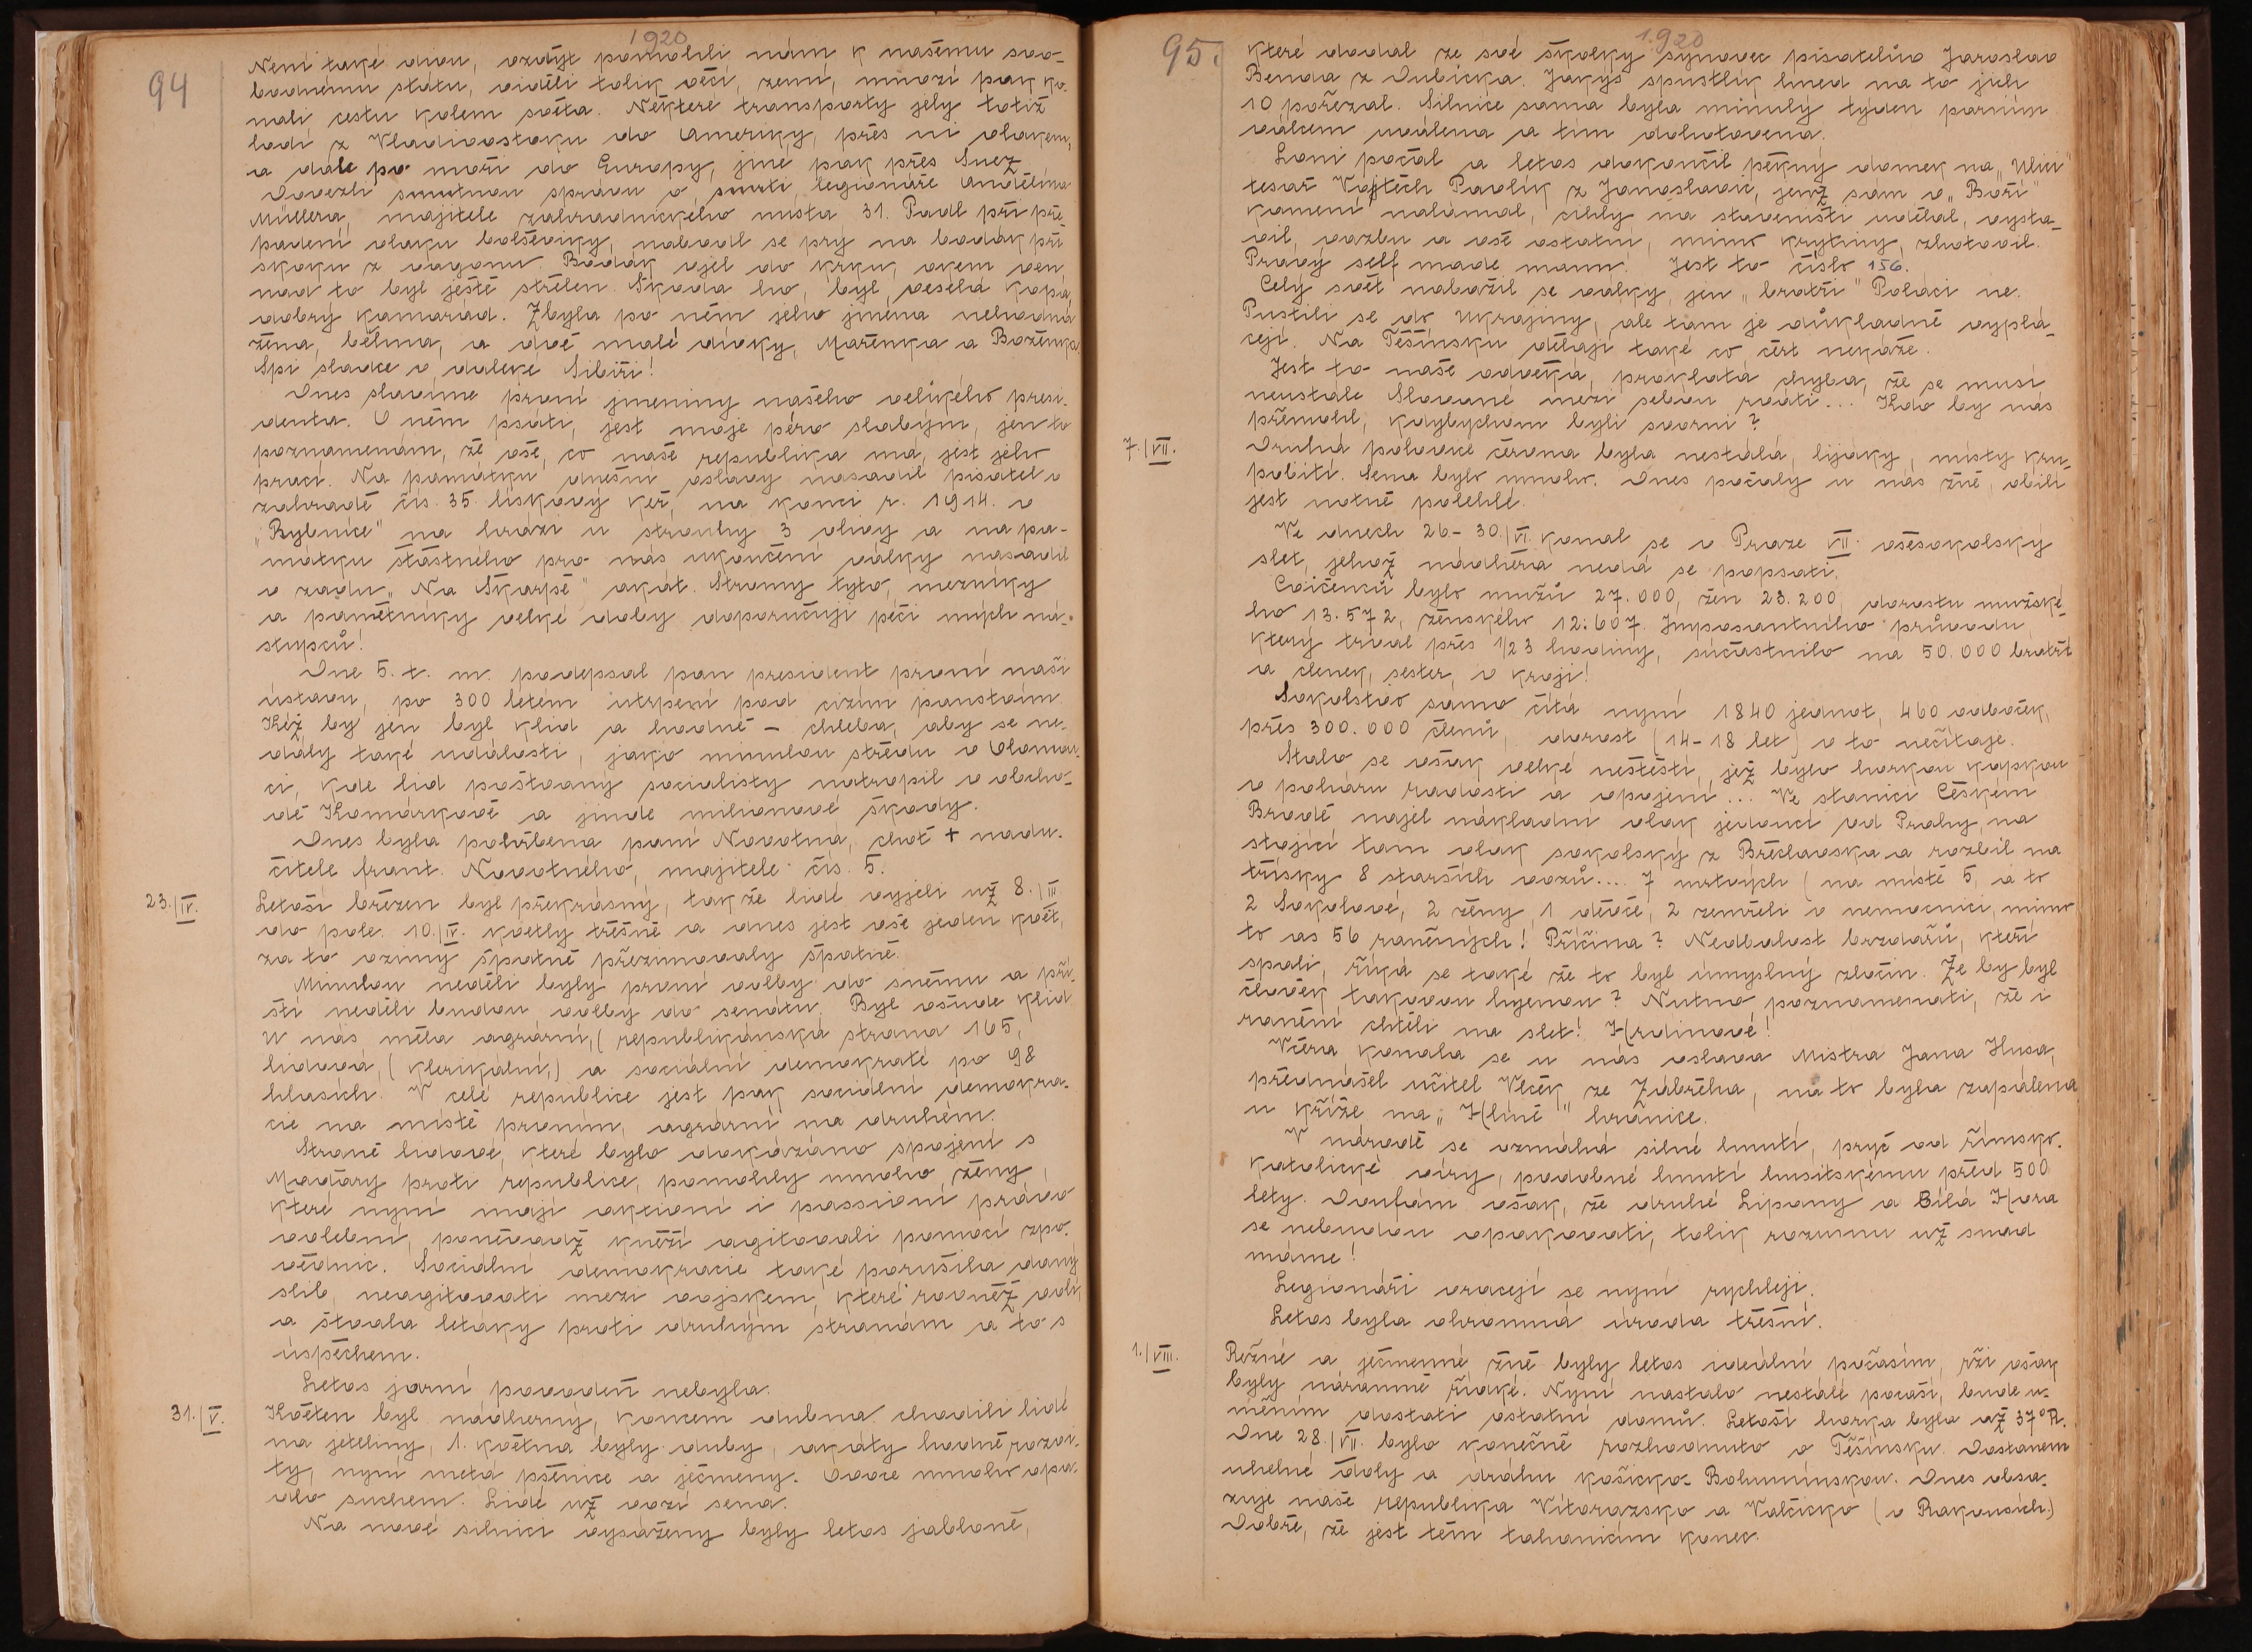 1920
94
Není také divu, vždyť pomohli nám k našemu svo-
bodnému státu, viděli tolik věcí, zemí, mnozí pak ko-
nali cestu kolem světa. Některé transporty jely totiž
lodí z Vladivostoku do Ameriky, přes ni vlakem,
a dále po moři do Europy, jiné pak přes Suez.
Dovezli smutnou zprávu o smrti legionáře Andělína
Müllera, majitele zahradnického místa 31. Padl při pře-
padení vlaku bolševiky, nabodl se prý na bodák při
skoku z vagonu. Bodák vjel do krku, okem ven,
nad to byl ještě střelen. Škoda ho, byl veselá kopa,
dobrý kamarád. Zbyla po něm jeho jména nehodná
žena, běhna, a dvě malé dívky, Mařenka a Boženka.
Spi sladce v daleké Sibiři!
Dnes slavíme první jmeniny našeho velikého presi-
denta. O něm psáti, jest moje péro slabým, jen to
poznamenám, že vše, co naše republika má, jest jeho
prací. Na památku dnešní oslavy nasadil pisatel v
zahradě čís. 35 lískový keř, na konci r. 1914. v
„Rybníce" na hrázi u strouhy 3 olivy a na pa-
mátku šťastného pro nás ukončení války nasadil
v zadu „Na Škarpě" akát. Stromy tyto, mezníky
a pamětníky velké doby doporučuji péči mých ná-
stupců!
Dne 5. t. m. podepsal pan president první naši
ústavu, po 300 letém utrpení pod cizím panstvím.
Kéž by jen byl klid a hodně – chleba, aby se ne-
dály také události, jako minulou středu v Olomou-
ci, kde lid poštvaný socialisty natropil v obcho-
dě Komárkově a jinde milionové škody.
Dnes byla pohřbena paní Novotná, choť + nadu-
čitele frant. Novotného, majitele čís. 5.
23./IV.
Letoší březen byl překrásný, tak že lidé vyjeli už 8./III.
do pole. 10./IV. kvetly třešně a dnes jest vše jeden květ,
za to ozimy špatně přezimovaly špatně.
Minulou neděli byly první volby do sněmu a pří-
ští neděli budou volby do senátu. Byl všude klid.
U nás měla agrární, (republikánská strana 165,
lidová, (klerikální,) a sociální demokraté po 98
hlasích. V celé republice jest pak sociální demokra-
cie na místě prvním, agrární na druhém.
Straně lidové, které bylo dokázáno spojení s
Maďary proti republice, pomohly mnoho ženy,
které nyní mají aktivní i passivní právo
volební, poněvadž kněží agitovali pomocí zpo-
vědnic. Sociální demokracie také porušila daný
slib, neagitovati mezi vojskem, které rovněž volí
a štvala letáky proti druhým stranám a to s
úspěchem.
Letos jarní povodeň nebyla.
31./V.
Květen byl nádherný, koncem dubna chodili lidé
na jeteliny, 1. května byly duby, akáty hodně rozvi-
ty, nyní metá pšenice a ječmeny. Ovoce mnoho opa-
dlo suchem. Lidé už vozí sena.
Na nové silnici vysázeny byly letos jabloně,
1920
95.
které dodal ze své školky synovec pisatelův Jaroslav
Benda z Dubicka. Jakýs spustlík hned na to jich
10 pořezal. Silnice sama byla minulý týden parním
válcem uválena a tím dohotovena.
Loni počal a letos dokončil pěkný domek na „Ulici"
tesař Vojtěch Pavlík z Janoslavic, jenž sám v „Boří"
kamení nalámal, cihly na staveništi udělal, vysta-
vil, vazbu a vše ostatní, mimo krytiny, zhotovil.
Pravý self made mann! Jest to číslo 156.
Celý svět nabažil se války, jen „bratři" Poláci ne.
Pustili se do Ukrajiny, ale tam je důkladně vyplá-
cejí. Na Těšínsku dělají také co čert nekáže.
Jest to naše odvěká, prokletá chyba, že se musí
neustále Slované mezi sebou rváti... Kdo by nás
přemohl, kdybychom byli svorni?
7./VII.
Druhá polovice června byla nestálá, lijáky, místy kru-
pobití. Sena bylo mnoho. Dnes počaly u nás žně, obilí
jest notně polehlé.
Ve dnech 26–30./VI. konal se v Praze VII. všesokolský
slet, jehož nádhera nedá se popsati.
Cvičenců bylo mužů 27.000, žen 23.200, dorostu mužské-
ho 13.572, ženského 12.607. Imposantního průvodu,
který trval přes 1/2 3 hodiny, súčastnilo na 50.000 bratří
a členek, sester, v kroji!
Sokolstvo samo čítá nyní 1840 jednot, 460 odboček,
přes 300.000 členů, dorost (14–18 let) v to nečítaje.
Stalo se však velké neštěstí, jež bylo horkou kapkou
v poháru radosti a opojení... Ve stanici Českém
Brodě najel nákladní vlak jedoucí od Prahy, na
stojící tam vlak sokolský z Břeclavska a rozbil na
třísky 8 starších vozů.... 7 mrtvých (na místě 5, a to
2 Sokolové, 2 ženy, 1 děvče, 2 zemřeli v nemocnici, mimo
to as 56 raněných! Příčina? Nedbalost brzdařů, kteří
spali, říká se také že to byl úmyslný zločin. Že by byl
člověk takovou hyenou? Nutno poznamenati, že i
ranění chtěli na slet! Hrdinové!
Včera konala se u nás oslava Mistra Jana Husa,
přednášel učitel Vlček ze Zábřeha, na to byla zapálena
u kříže na „Hlíně" hranice.
V národě se vzmáhá silné hnutí, pryč od římsko-
katolické víry, podobné hnutí husitskému před 500
lety. Doufám však, že druhé Lipany a Bílá Hora
se nebudou opakovati, tolik rozumu už snad
máme!
Legionáři vracejí se nyní rychleji.
Letos byla ohromná úroda třešní.
1./VIII.
Režné a ječmenné žně byly letos ideální počasím, rži však
byly náramně řídké. Nyní nastalo nestálé počasí, bude u-
měním dostati ostatní domů. Letoší horka byla až 37°R.
Dne 28./VII. bylo konečně rozhodnuto o Těšínsku. Dostanem
uhelné doly a dráhu košicko-Bohumínskou. Dnes obsa-
zuje naše republika Vitorazsko a Valčicko (v Rakousích.)
Dobře, že jest těm tahanicím konec.